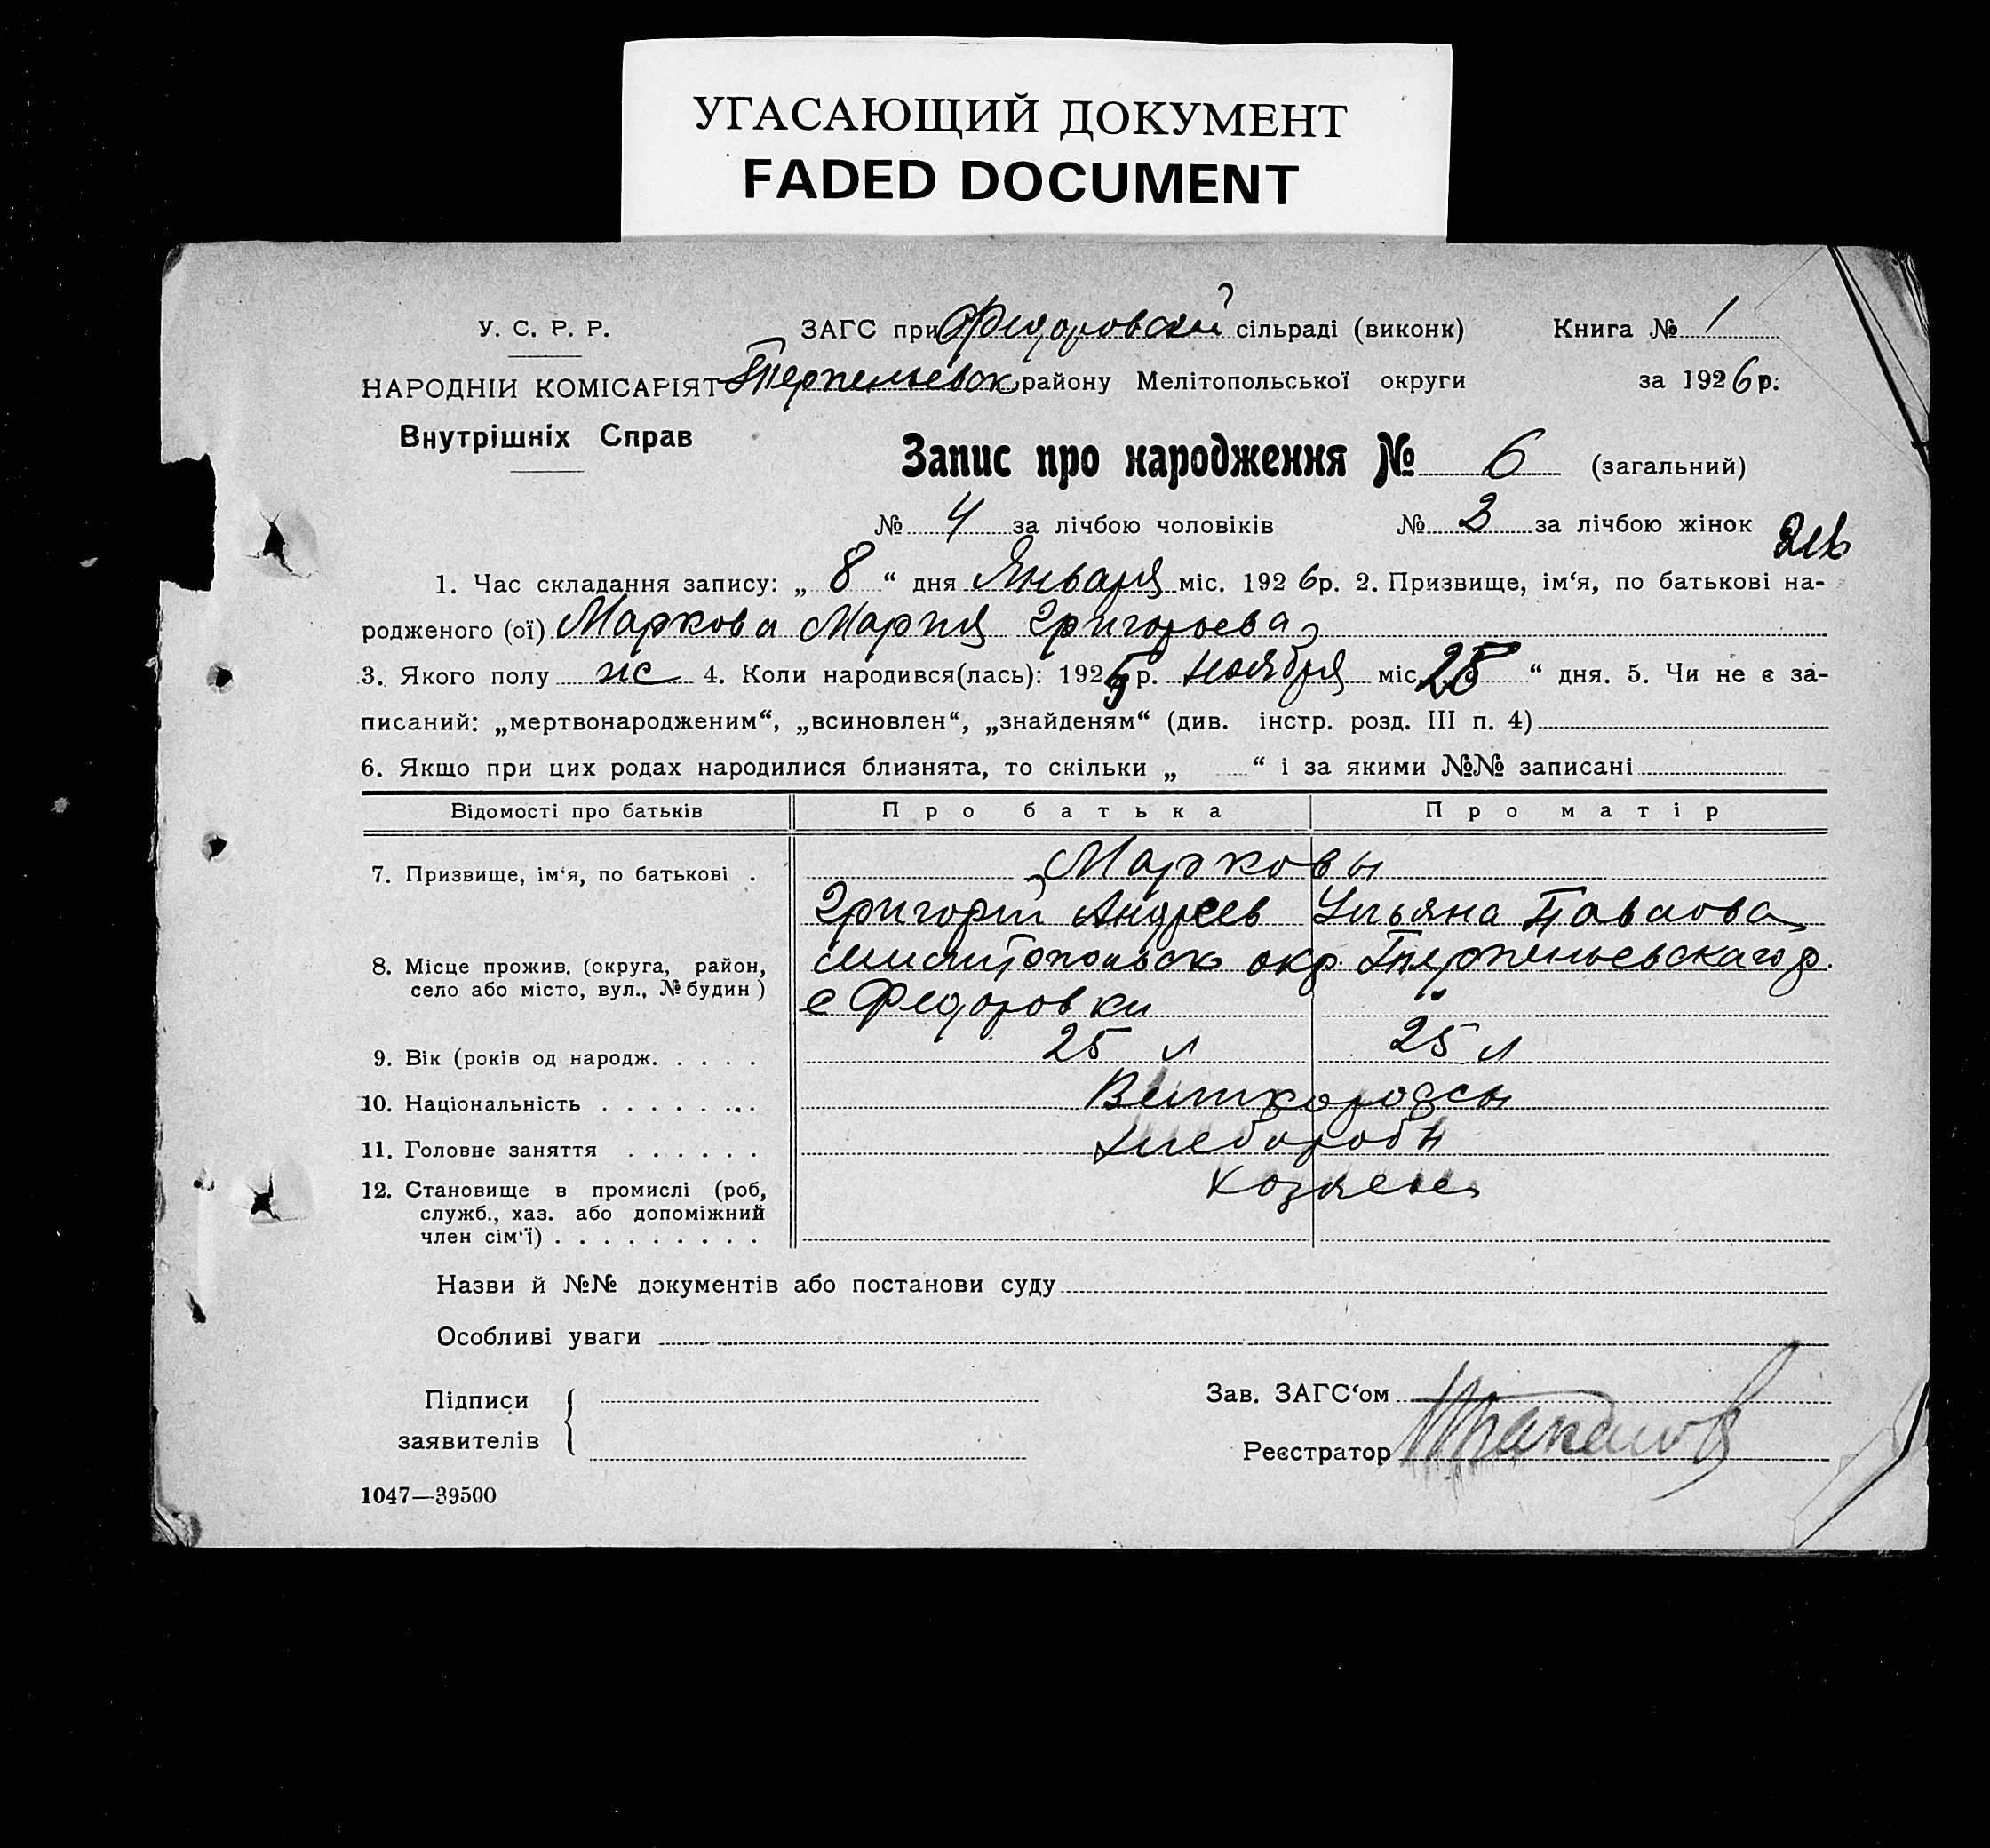 УГАСАЮЩИЙ ДОКУМЕНТ
FADED DOCUMENT
У. С. Р. Р.
НАРОДНІЙ КОМІСАРІЯТ
Внутрішніх Справ
ЗАГС при Федоровской сільраді (виконк) Книга № 1
Терпеньевск району Мелітопольської округи за 1926 р.
Запис про народження № 6 (загальний)
№ 4 за лічбою чоловіків № 3 за лічбою жінок
1. Час складання запису: „ 8 “ дня Января міс. 1926 р. 2. Призвище, ім‘я, по батькові на-
родженого (ої) Маркова Мария Григорьева
3. Якого полу ж 4. Коли народився(лась): 1925 р. ноября міс. 25 “ дня. 5. Чи не є за-
писаний: „мертвонародженим“, „всиновлен“, „знайденям“ (див. інстр. розд. III п. 4)
6. Якщо при цих родах народилися близнята, то скільки „ “ і за якими №№ записані
Відомості про батьків Про батька Про матір
7. Призвище, ім‘я, по батькові . Марковы
Григорий Андреев Ульяна Павлова
8. Місце прожив. (округа, район, село або місто, вул., № будин ) Мелитопольск окр Терпеньевскаго р.
с Федоровки
9. Вік (років од народж. . . . . 25 л 25 л
10. Національність . . . . . . . . Великороссы
11. Головне заняття . . . . . . Хлеборобы
12. Становище в промислі (роб, служб., хаз. або допоміжний член сім‘ї) . . . . . . . . .
Назви й №№ документів або постанови суду
Особливі уваги
Підписи
заявителів
Зав. ЗАГС‘ом
Реєстратор
1047—39500